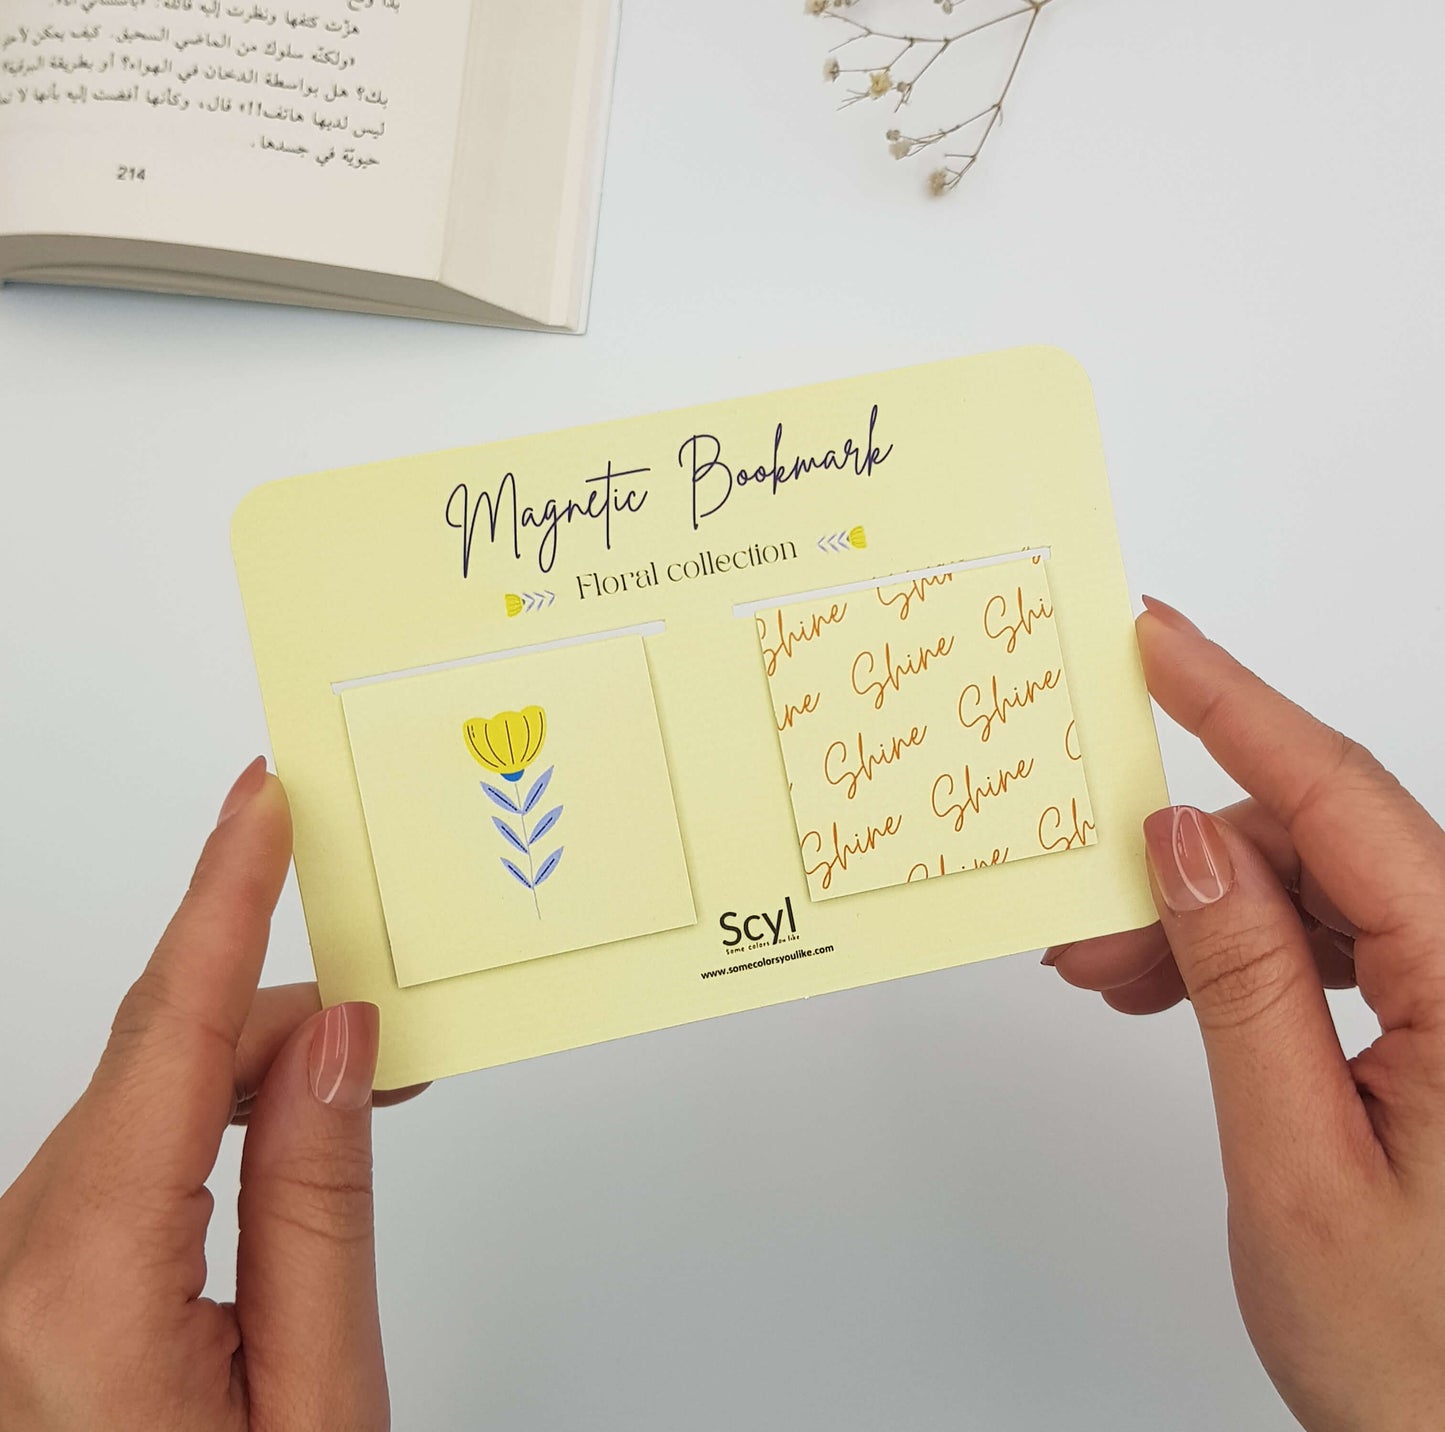 هزّت كتفها ونظرت إليه قائلة:
«ولكنّه سلوك من الماضي السحيق. كيف يمكن
بك؟ هل بواسطة الدخان في الهواء؟ أو بطريقة البرقية؟
ليس لديها هاتف!!» قال، وكأنها أفضت إليه بأنها لا
حيويّة في جسدها.
214
Magnetic Bookmark
Floral collection
Shine Shine
ine Shine Shi
Shine Shine
Shine Shine
Shine Sh
Scyl
Some colors You like
www.somecolorsyoulike.com